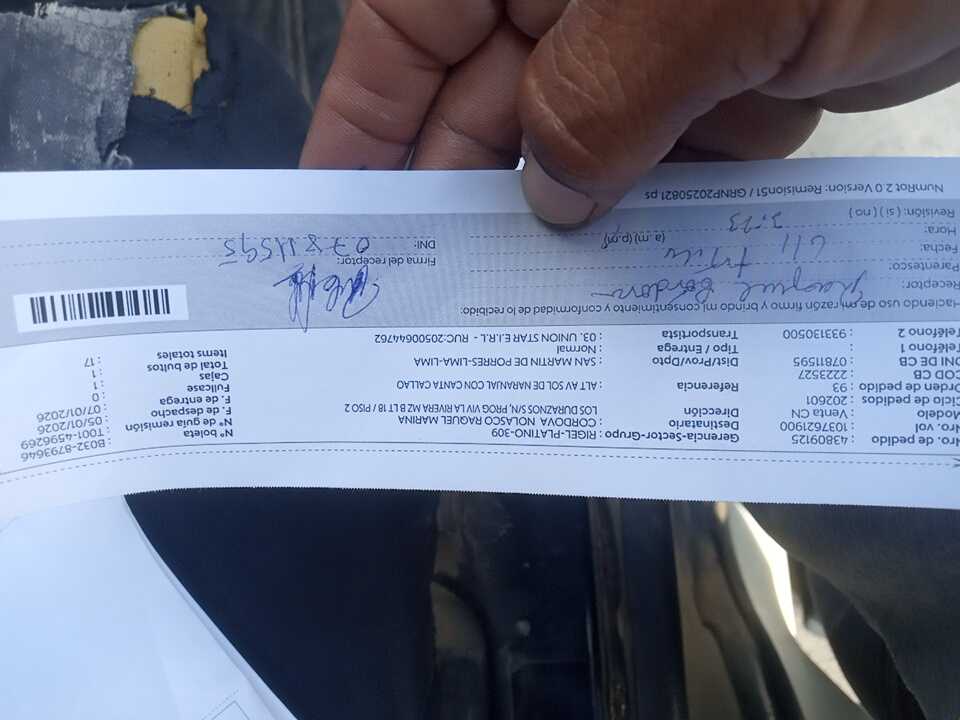 Nro. de pedido : 43809125 Gerencia-Sector-Grupo : RIGEL-PLATINO-309 N° boleta : B032-8793646
Nro. vol : 1037621900 Destinatario : CORDOVA NOLASCO RAQUEL MARINA N° de guía remisión : T001-4596269
Modelo : Venta CN Dirección : LOS DURAZNOS S/N, PROG VIV LA RIVERA MZ B LT 18 / PISO 2 F. de despacho : 05/01/2026
Ciclo de pedidos : 202601 F. de entrega : 07/01/2026
Orden de pedido : 93 Referencia : ALT AV SOL DE NARANJAL CON CANTA CALLAO Fullcase : 0
COD CB : 2223527 Cajas : 1
DNI DE CB : 07811595 Dist/Prov/Dpto : SAN MARTIN DE PORRES-LIMA-LIMA Total de bultos : 1
Teléfono 1 : Tipo / Entrega : Normal Items totales : 17
Teléfono 2 : 933130500 Transportista : 03. UNION STAR E.I.R.L - RUC:20500644762
Haciendo uso de mi razón firmo y brindo mi consentimiento y conformidad de lo recibido:
Receptor: Raquel
Parentesco: Firma del receptor:
Fecha:
Hora: 3:23 (a.m)(p.m) DNI: 07811595
Revisión: ( si ) ( no )
NumRot 2.0 Version: Remision51 / GRNP20250821.ps